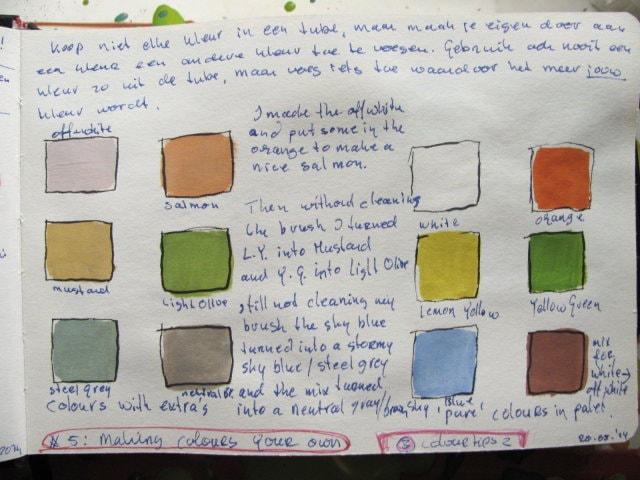 Koop niet elke kleur in een tube, maar maak je eigen door aan
een kleur een andere kleur toe te voegen. Gebruik ook nooit een
kleur zo uit de tube, maar voeg iets toe waardoor het meer jouw
kleur wordt.
offwhite
salmon
mustard
Light Olive
steel grey
neutral gr.
Colours with extra's
I made the offwhite
and put some in the
orange to make a
nice salmon.
Then without cleaning
the brush I turned
L.Y. into Mustard
and Y.G. into Light Olive
still not cleaning my
brush the sky blue
turned into a stormy
sky blue/steel grey
and the mix turned
into a neutral gray/brown
white
orange
Lemon Yellow
Yellow Green
sky blue
mix
for
white →
offwhite
'pure' colours in palet.
# 5: Making colours your own
colourtips 2
20-08-'14
2014